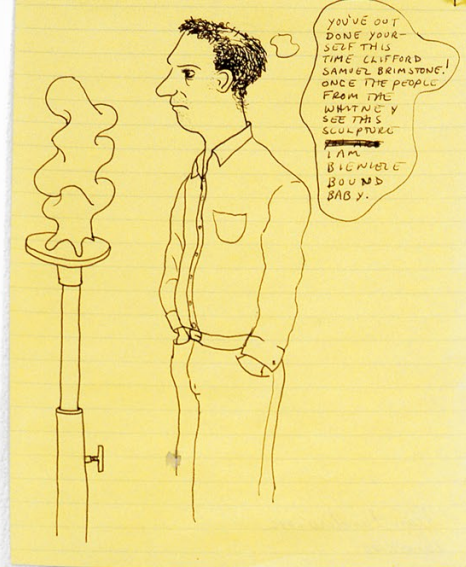 YOU'VE OUT
DONE YOUR-
SELF THIS
TIME CLIFFORD
SAMUEL BRIMSTONE!
ONCE THE PEOPLE
FROM THE
WHITNEY
SEE THIS
SCULPTURE
I AM
BIENIELE
BOUND
BABY.